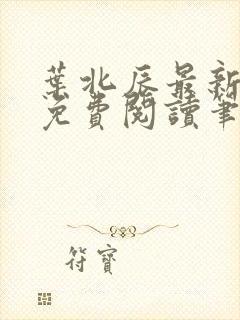 葉北辰最新
免費閱讀筆
符寶